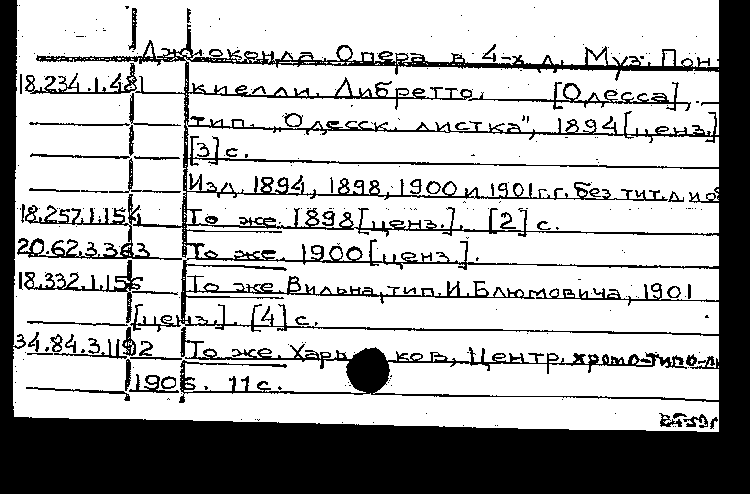 Джиоконда. Опера в 4-х д. Муз. Пон-
18.234.1.481 киелли. Либретто. [Одесса],
тип. "Одесск. листка", 1894 [ценз.]
[3] с.
Изд. 1894, 1898, 1900 и 1901 г.г. без тит. л. и об
18.257.1.154 То же. 1898 [ценз.]. [2] с.
20.62.3.363 То же. 1900 [ценз.].
18.332.1.156 То же. Вильна, тип. И. Блюмовича, 1901
[ценз.]. [4] с.
34.84.3.1192 То же. Харьков, Центр. хромо-типо-л
1906. 11 с.